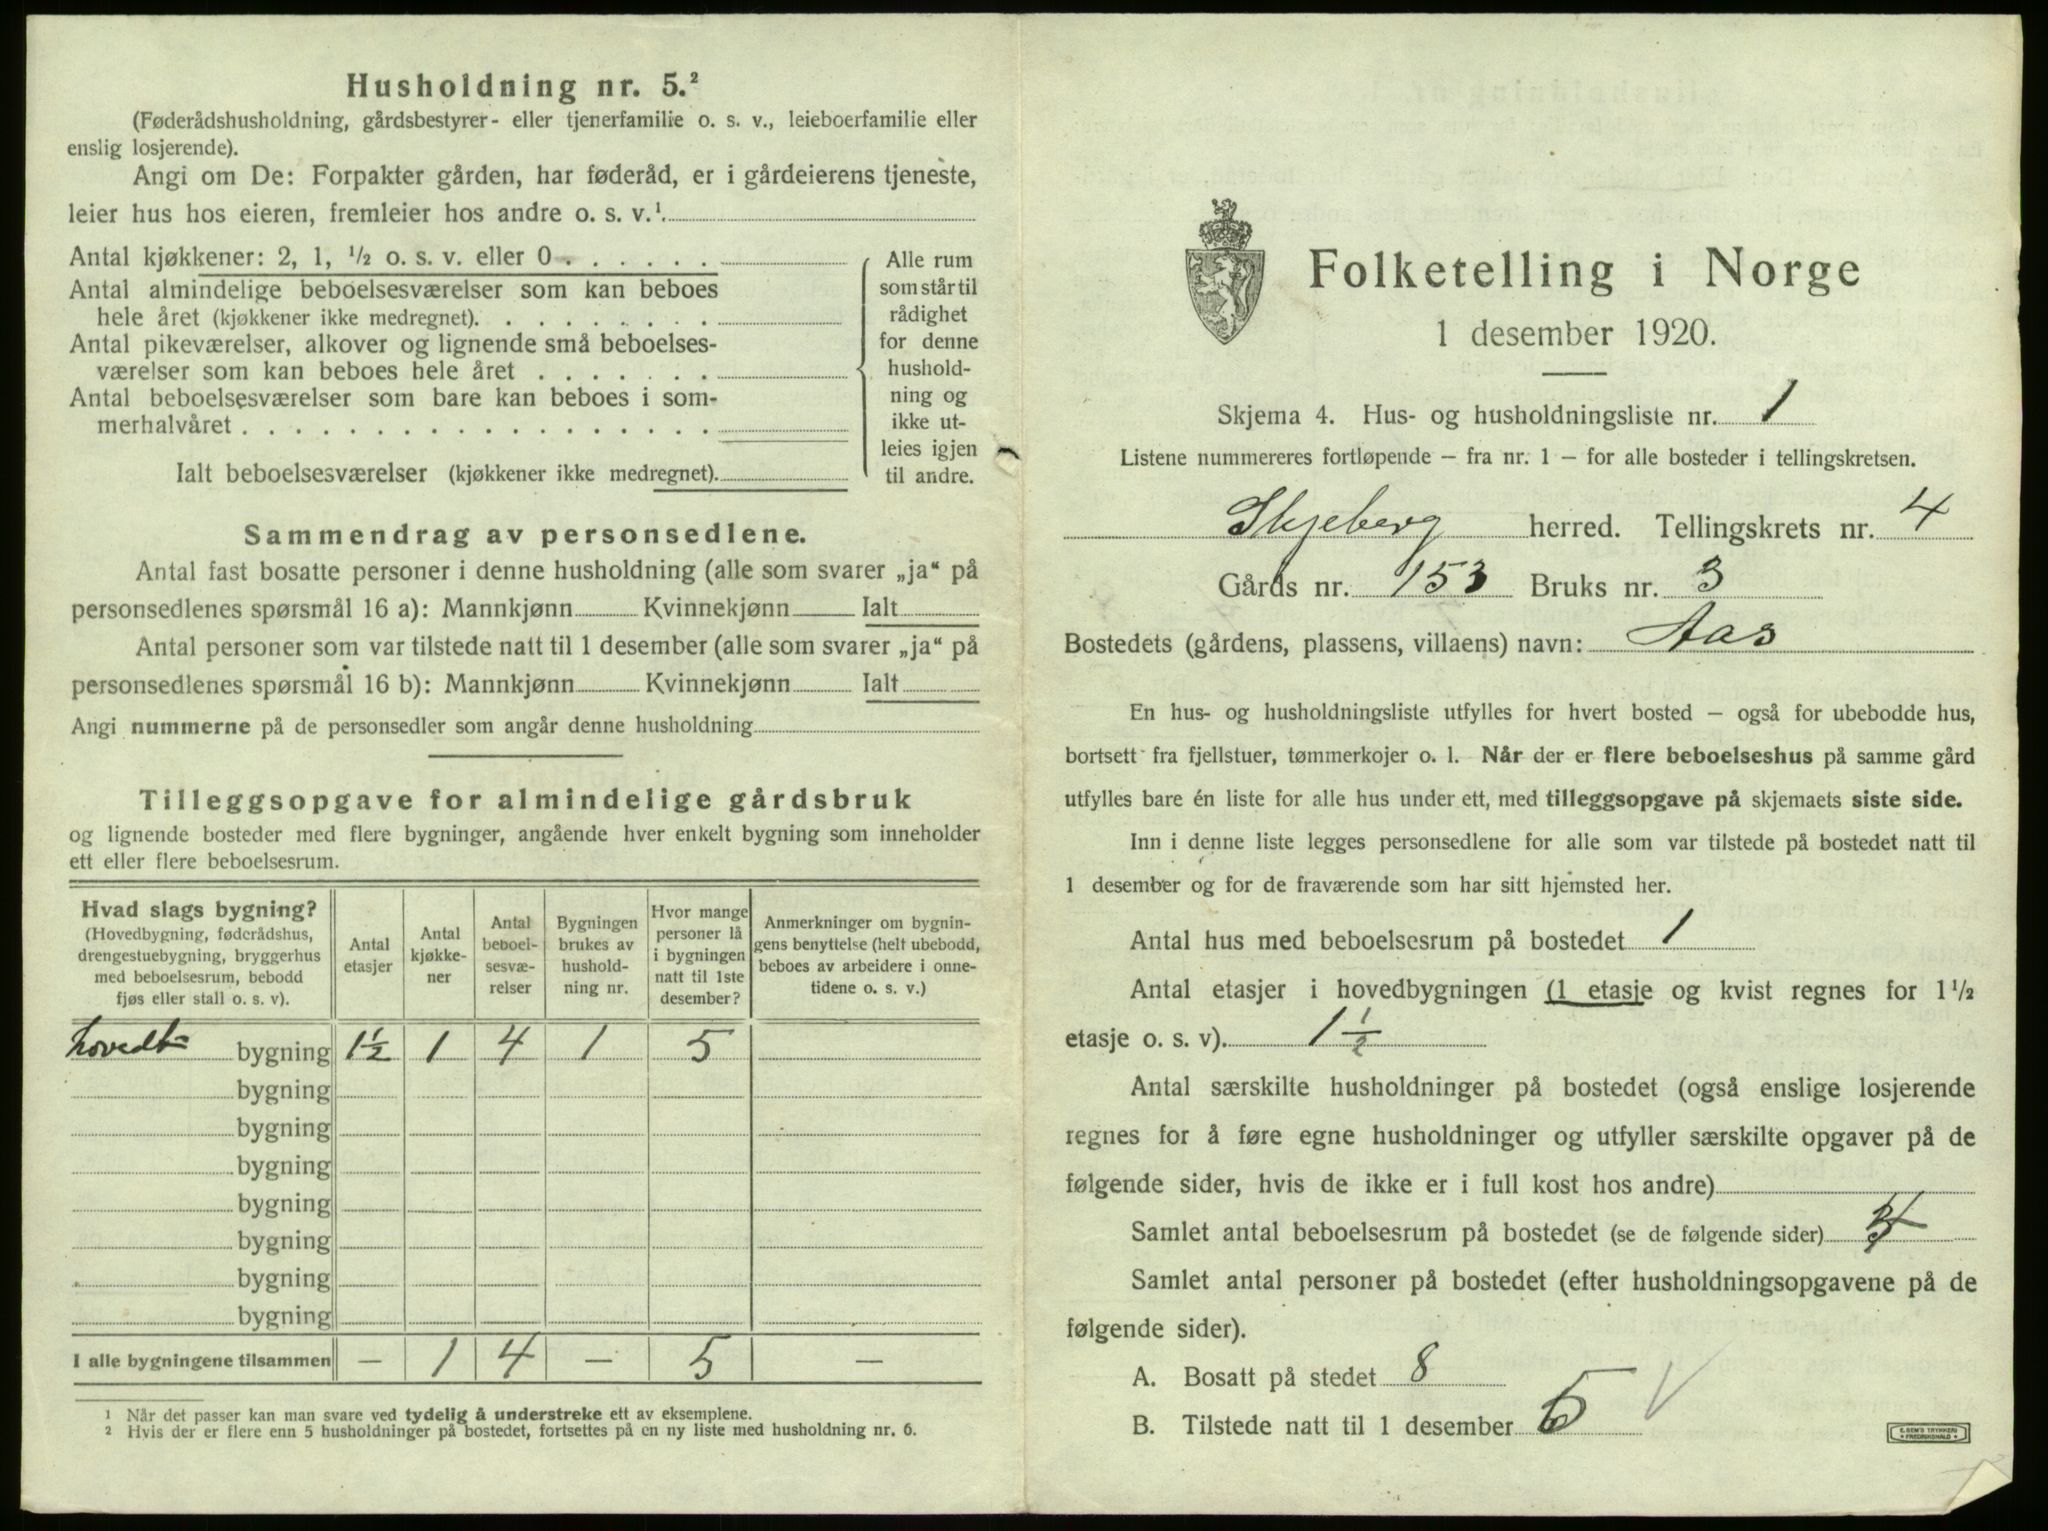 Husholdning nr. 5.²
(Føderådshusholdning, gårdsbestyrer- eller tjenerfamilie o. s. v., leieboerfamilie eller
enslig losjerende).
Angi om De: Forpakter gården, har føderåd, er i gårdeierens tjeneste,
leier hus hos eieren, fremleier hos andre o. s. v.¹
Antal kjøkkener: 2, 1, ½ o. s. v. eller 0
Antal almindelige beboelsesværelser som kan beboes
hele året (kjøkkener ikke medregnet).
Antal pikeværelser, alkover og lignende små beboelses-
værelser som kan beboes hele året
Antal beboelsesværelser som bare kan beboes i som-
merhalvåret
Ialt beboelsesværelser (kjøkkener ikke medregnet).
Alle rum
som står til
rådighet
for denne
hushold-
ning og
ikke ut-
leies igjen
til andre.
Sammendrag av personsedlene.
Antal fast bosatte personer i denne husholdning (alle som svarer „ja“ på
personsedlenes spørsmål 16 a): Mannkjønn Kvinnekjønn Ialt
Antal personer som var tilstede natt til 1 desember (alle som svarer „ja“ på
personsedlenes spørsmål 16 b): Mannkjønn Kvinnekjønn Ialt
Angi nummerne på de personsedler som angår denne husholdning
Tilleggsopgave for almindelige gårdsbruk
og lignende bosteder med flere bygninger, angående hver enkelt bygning som inneholder
ett eller flere beboelsesrum.
Hvad slags bygning?
(Hovedbygning, føderådshus,
drengestuebygning, bryggerhus
med beboelsesrum, bebodd
fjøs eller stall o. s. v).
Antal
etasjer
Antal
kjøkke-
ner
Antal
beboel-
sesvæ-
relser
Bygningen
brukes av
hushold-
ning nr.
Hvor mange
personer lå
i bygningen
natt til 1ste
desember?
Anmerkninger om bygnin-
gens benyttelse (helt ubebodd,
beboes av arbeidere i onne-
tidene o. s. v.)
hovedt bygning 1½ 1 4 1 5
bygning
bygning
bygning
bygning
bygning
bygning
bygning
I alle bygningene tilsammen — 1 4 — 5 —
¹ Når det passer kan man svare ved tydelig å understreke ett av eksemplene.
² Hvis der er flere enn 5 husholdninger på bostedet, fortsettes på en ny liste med husholdning nr. 6.
Folketelling i Norge
1 desember 1920.
Skjema 4. Hus- og husholdningsliste nr. 1
Listene nummereres fortløpende — fra nr. 1 — for alle bosteder i tellingskretsen.
Skjeberg herred. Tellingskrets nr. 4
Gårds nr. 153 Bruks nr. 3
Bostedets (gårdens, plassens, villaens) navn: Aas
En hus- og husholdningsliste utfylles for hvert bosted — også for ubebodde hus,
bortsett fra fjellstuer, tømmerkojer o. l. Når der er flere beboelseshus på samme gård
utfylles bare én liste for alle hus under ett, med tilleggsopgave på skjemaets siste side.
Inn i denne liste legges personsedlene for alle som var tilstede på bostedet natt til
1 desember og for de fraværende som har sitt hjemsted her.
Antal hus med beboelsesrum på bostedet 1
Antal etasjer i hovedbygningen (1 etasje og kvist regnes for 1½
etasje o. s. v). 1½
Antal særskilte husholdninger på bostedet (også enslige losjerende
regnes for å føre egne husholdninger og utfyller særskilte opgaver på de
følgende sider, hvis de ikke er i full kost hos andre)
Samlet antal beboelsesrum på bostedet (se de følgende sider) 4
Samlet antal personer på bostedet (efter husholdningsopgavene på de
følgende sider).
A. Bosatt på stedet 8
B. Tilstede natt til 1 desember
E. SEM'S TRYKKERI
FREDRIKSHALD